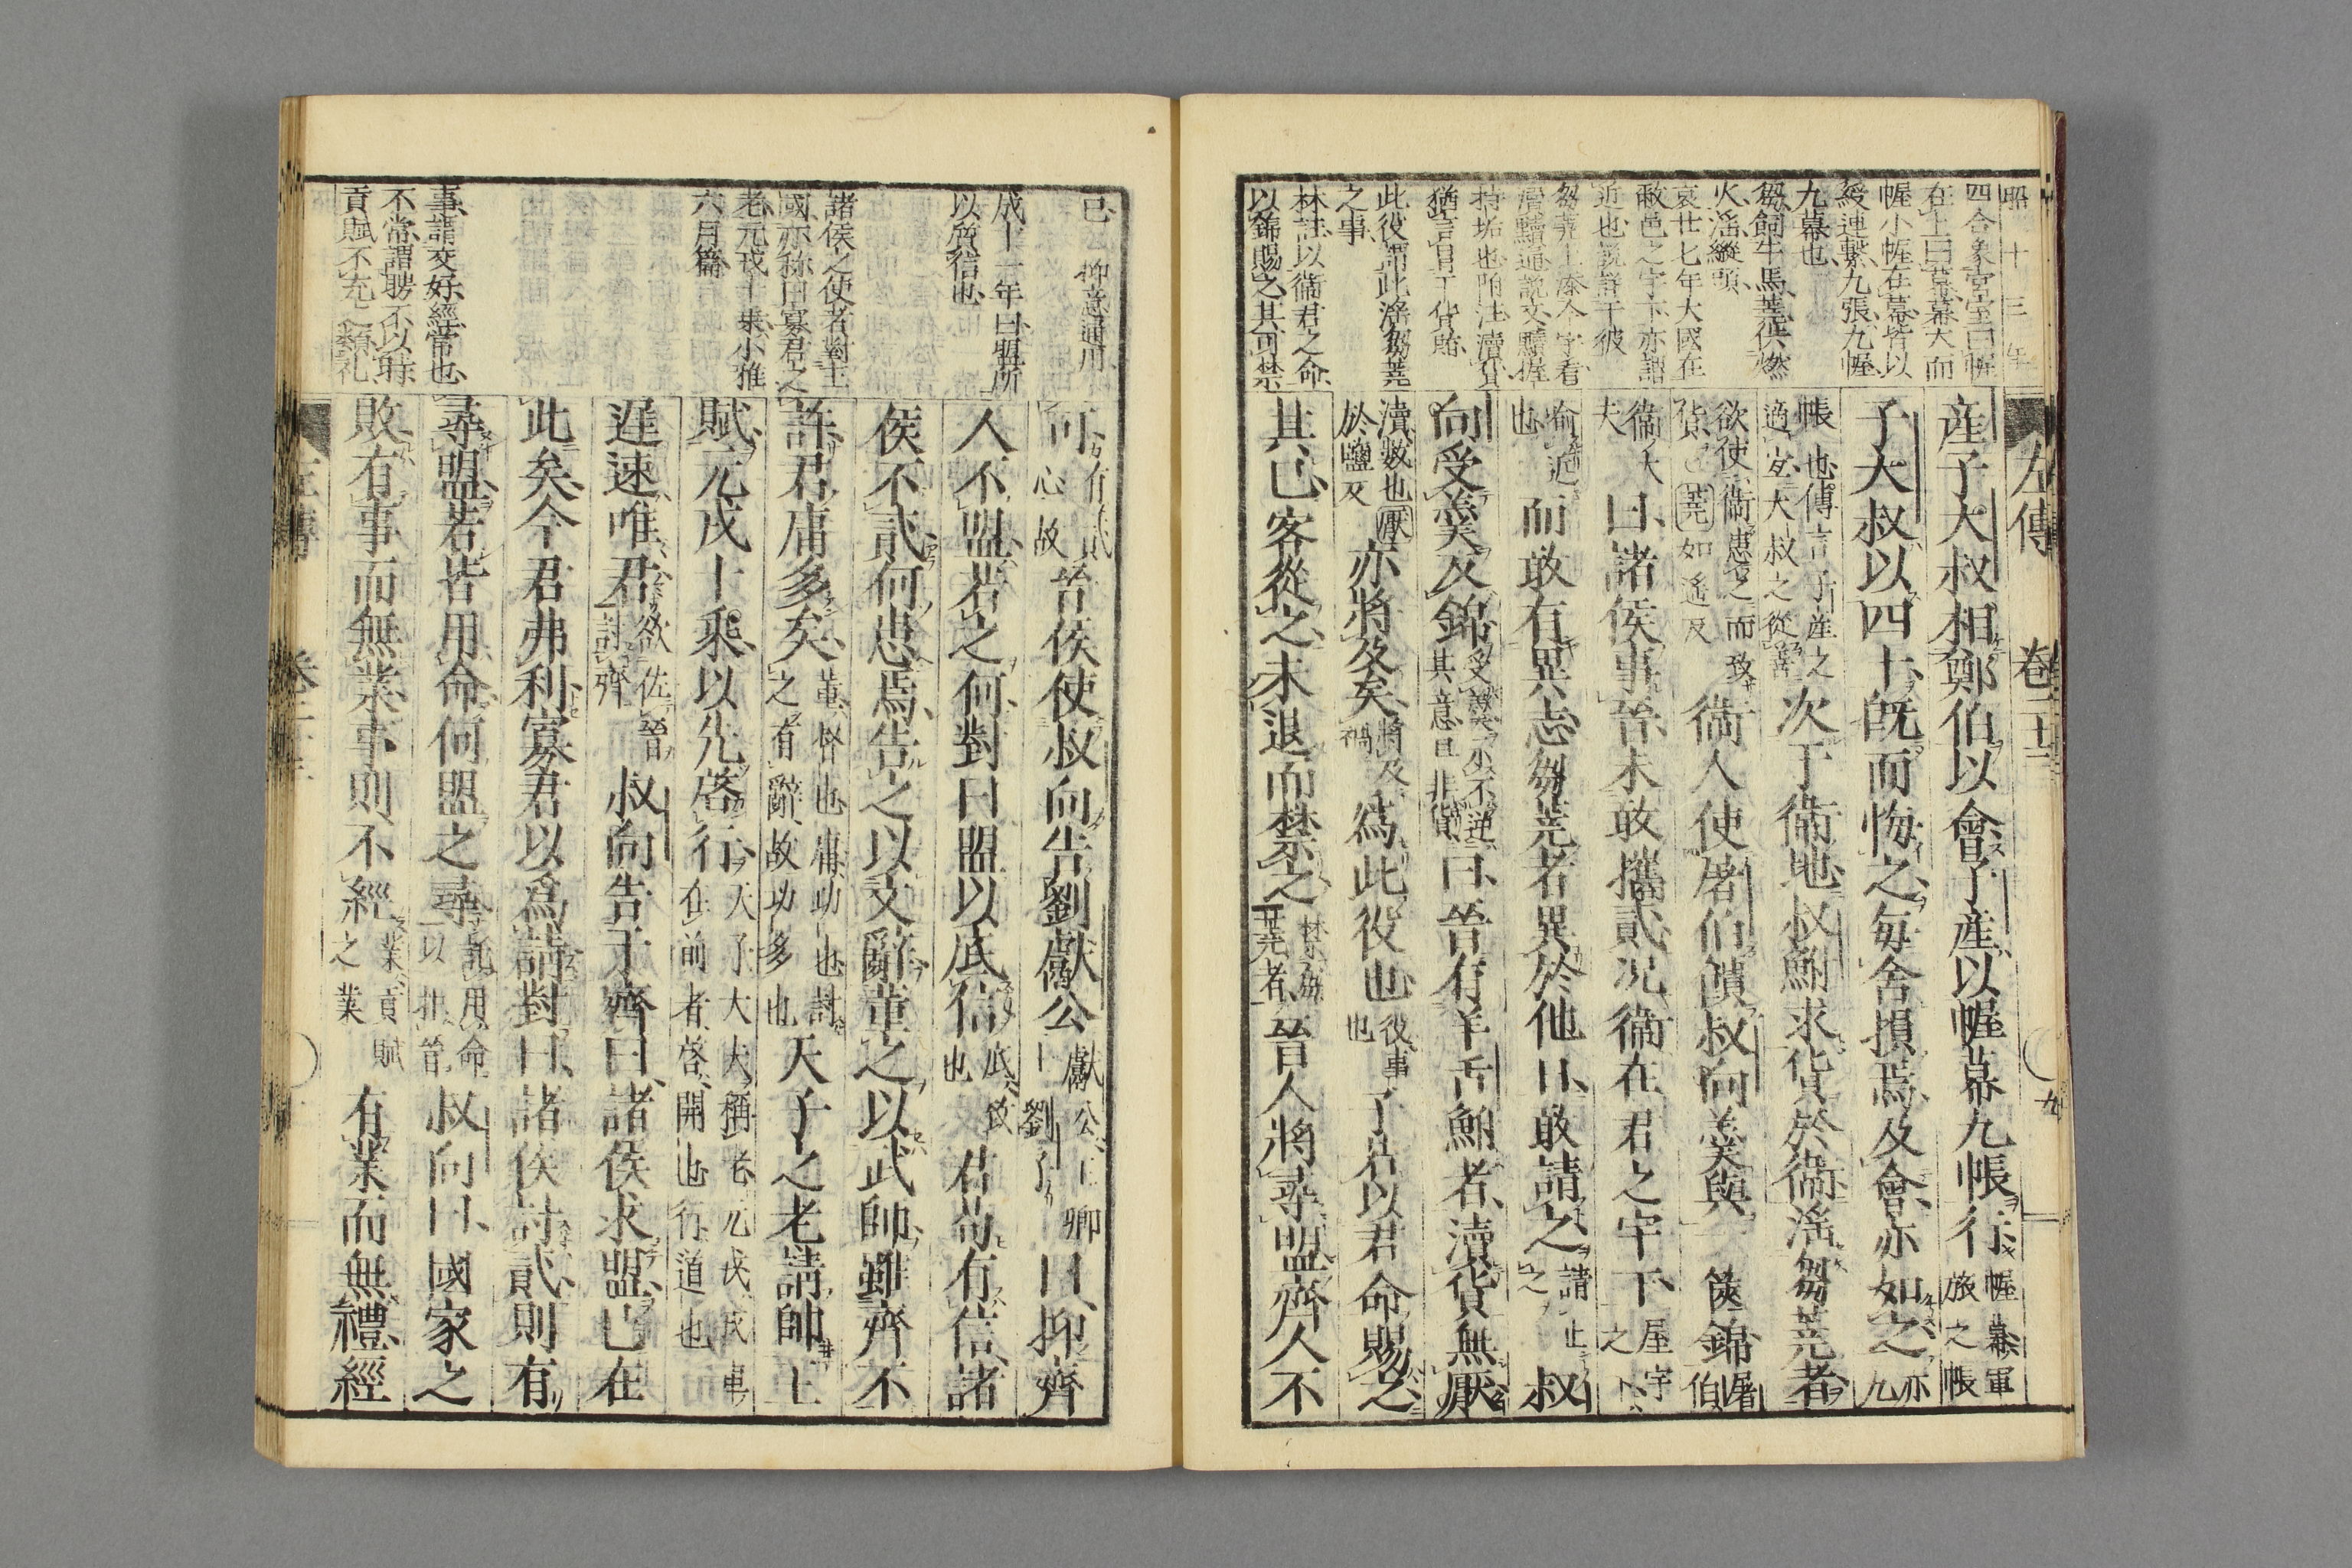 昭十三年
四合象宮室曰幄
在上曰幕幕大而
幄小幄在幕皆以
綬連繫九張九幄
九幕也
芻飼牛馬蕘供燃
火滛縱㒵
哀廿七年大國在
敝邑之宇下亦謂
近也
此役謂此滛芻蕘
之事
林註以衞君之命
以錦賜之其可禁
左傳 卷二十三 九
産子大叔相鄭伯以會子産以幄幕九帳行幄幕軍旅之帳
子大叔以四十旣而悔之毎舍損焉及會亦如之亦九
帳也傳言子産之適宜大叔之從善次于衞地叔鮒求貨於衞滛芻蕘者
欲使衞患之而致貨蕘如遥反衞人使屠伯饋叔向羹與一篋錦屠伯
衞大夫曰諸侯事晉未敢攜貳况衞在君之宇下屋宇之下
喻近也而敢有異志芻蕘者異於他日敢請之請止之叔
向受羹反錦受羹示不逆其意且非貨曰晉有羊舌鮒者瀆貨無厭
瀆數也厭於鹽反亦將及矣將及禍爲此役也役事也子若以君命賜之
其已客從之未退而禁之禁芻蕘者晉人將尋盟齊人不
已抑意通用
成十一年曰盟所
以質信也
諸侯之使者對王
國亦称曰寡君之
老元戎十乘小雅
六月篇
事請交好經常也
不常謂聘不以時
貢賦不充之類礼
可有貳心故晉侯使叔向告劉獻公獻公王卿士劉子曰抑齊
人不盟若之何對曰盟以底信底致也君苟有信諸
侯不貳何患焉告之以文辭董之以武師雖齊不
許君庸多矣董督也庸功也討之有辭故功多也天子之老請帥王
賦元戎十乘以先啓行天子大夫稱老元戎戎車在前者啓開也行道也
遲速唯君欲佐晉討齊叔向告于齊曰諸侯求盟已在
此矣今君弗利寡君以爲請對曰諸侯討貳則有
尋盟若皆用命何盟之尋託用命以拒晉叔向曰國家之
敗有事而無業事則不經業貢賦之業有業而無禮經